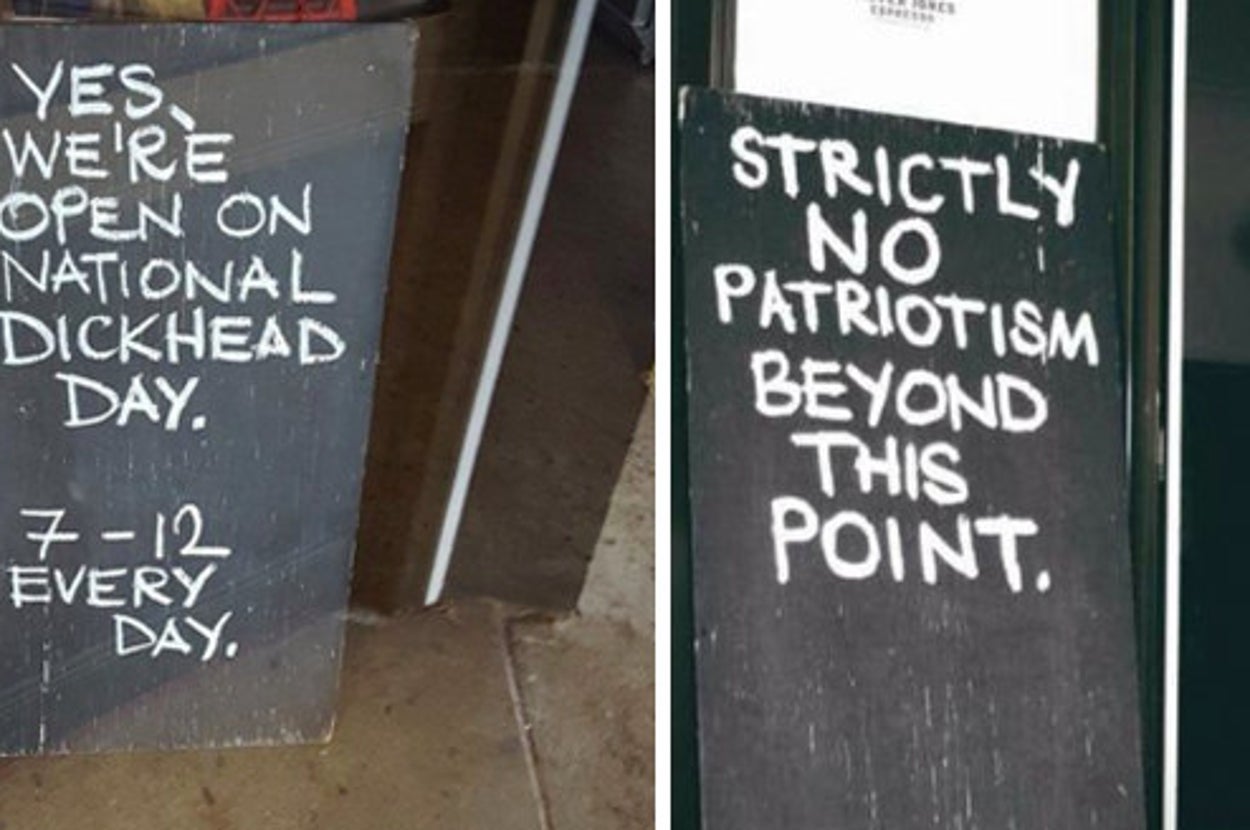 YES,
WE'RE
OPEN ON
NATIONAL
DICKHEAD
DAY.
7-12
EVERY
DAY.
ESPRESSO
STRICTLY
NO
PATRIOTISM
BEYOND
THIS
POINT.